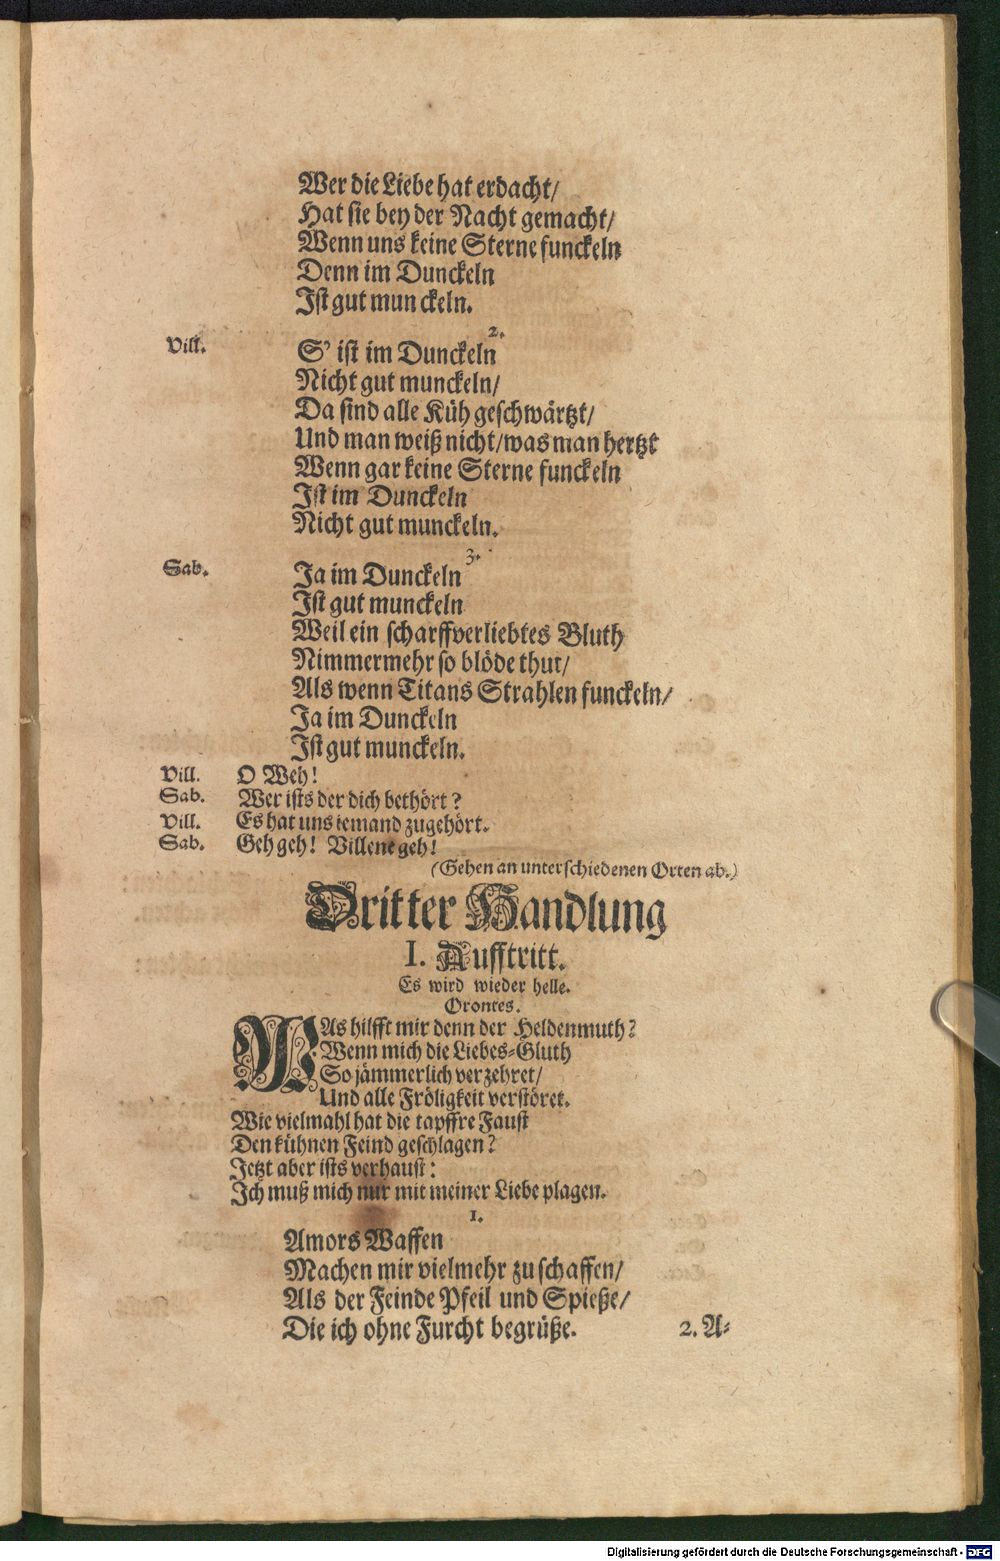 Wer die Liebe hat erdacht/
Hat sie bey der Nacht gemacht/
Wenn uns keine Sterne funckeln
Denn im Dunckeln
Ist gut munckeln.
2.
Vill. S' ist im Dunckeln
Nicht gut munckeln/
Da sind alle Küh geschwärtzt/
Und man weiß nicht/was man hertzt
Wenn gar keine Sterne funckeln
Ist im Dunckeln
Nicht gut munckeln.
3.
Sab. Ja im Dunckeln
Ist gut munckeln
Weil ein scharffverliebtes Bluth
Nimmermehr so blöde thut/
Als wenn Titans Strahlen funckeln/
Ja im Dunckeln
Ist gut munckeln.
Vill. O Weh!
Sab. Wer ists der dich bethört?
Vill. Es hat uns iemand zugehört.
Sab. Geh geh! Villene geh!
(Gehen an unterschiedenen Orten ab.)
Dritter Handlung
I. Aufftritt.
Es wird wieder helle.
Orontes.
WAs hilfft mir denn der Heldenmuth?
Wenn mich die Liebes-Gluth
So jämmerlich verzehret/
Und alle Fröligkeit verstöret.
Wie vielmahl hat die tapffre Faust
Den kühnen Feind geschlagen?
Jetzt aber ists verhaust:
Ich muß mich nur mit meiner Liebe plagen.
1.
Amors Waffen
Machen mir vielmehr zu schaffen/
Als der Feinde Pfeil und Spieße/
Die ich ohne Furcht begrüße.
2. A-
Digitalisierung gefördert durch die Deutsche Forschungsgemeinschaft - DFG